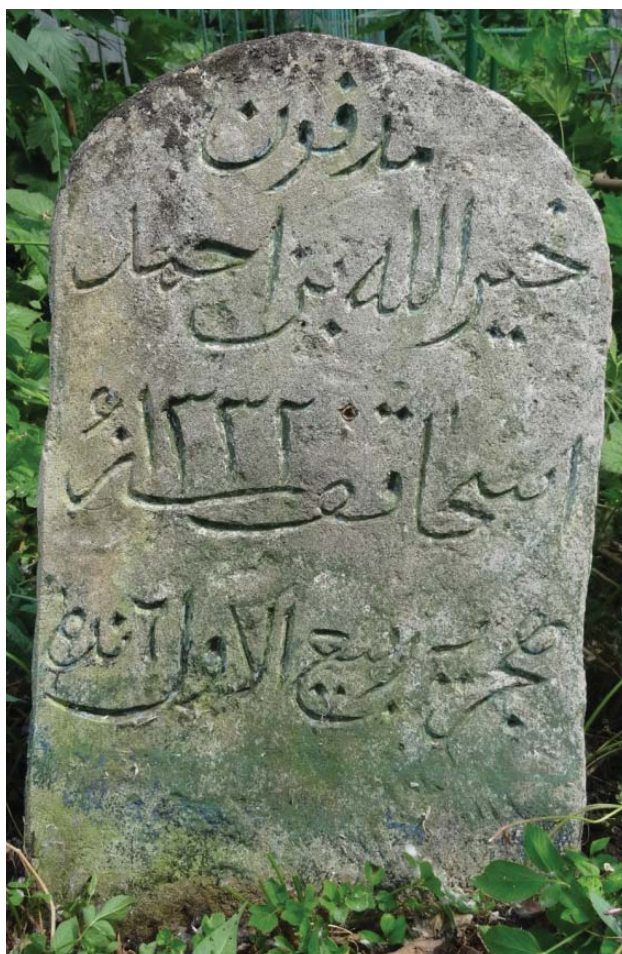 مدفون
خير الله بن احمد
اسحاقف ١٣٣٢
هجريه ربيع الاول ٦ نده